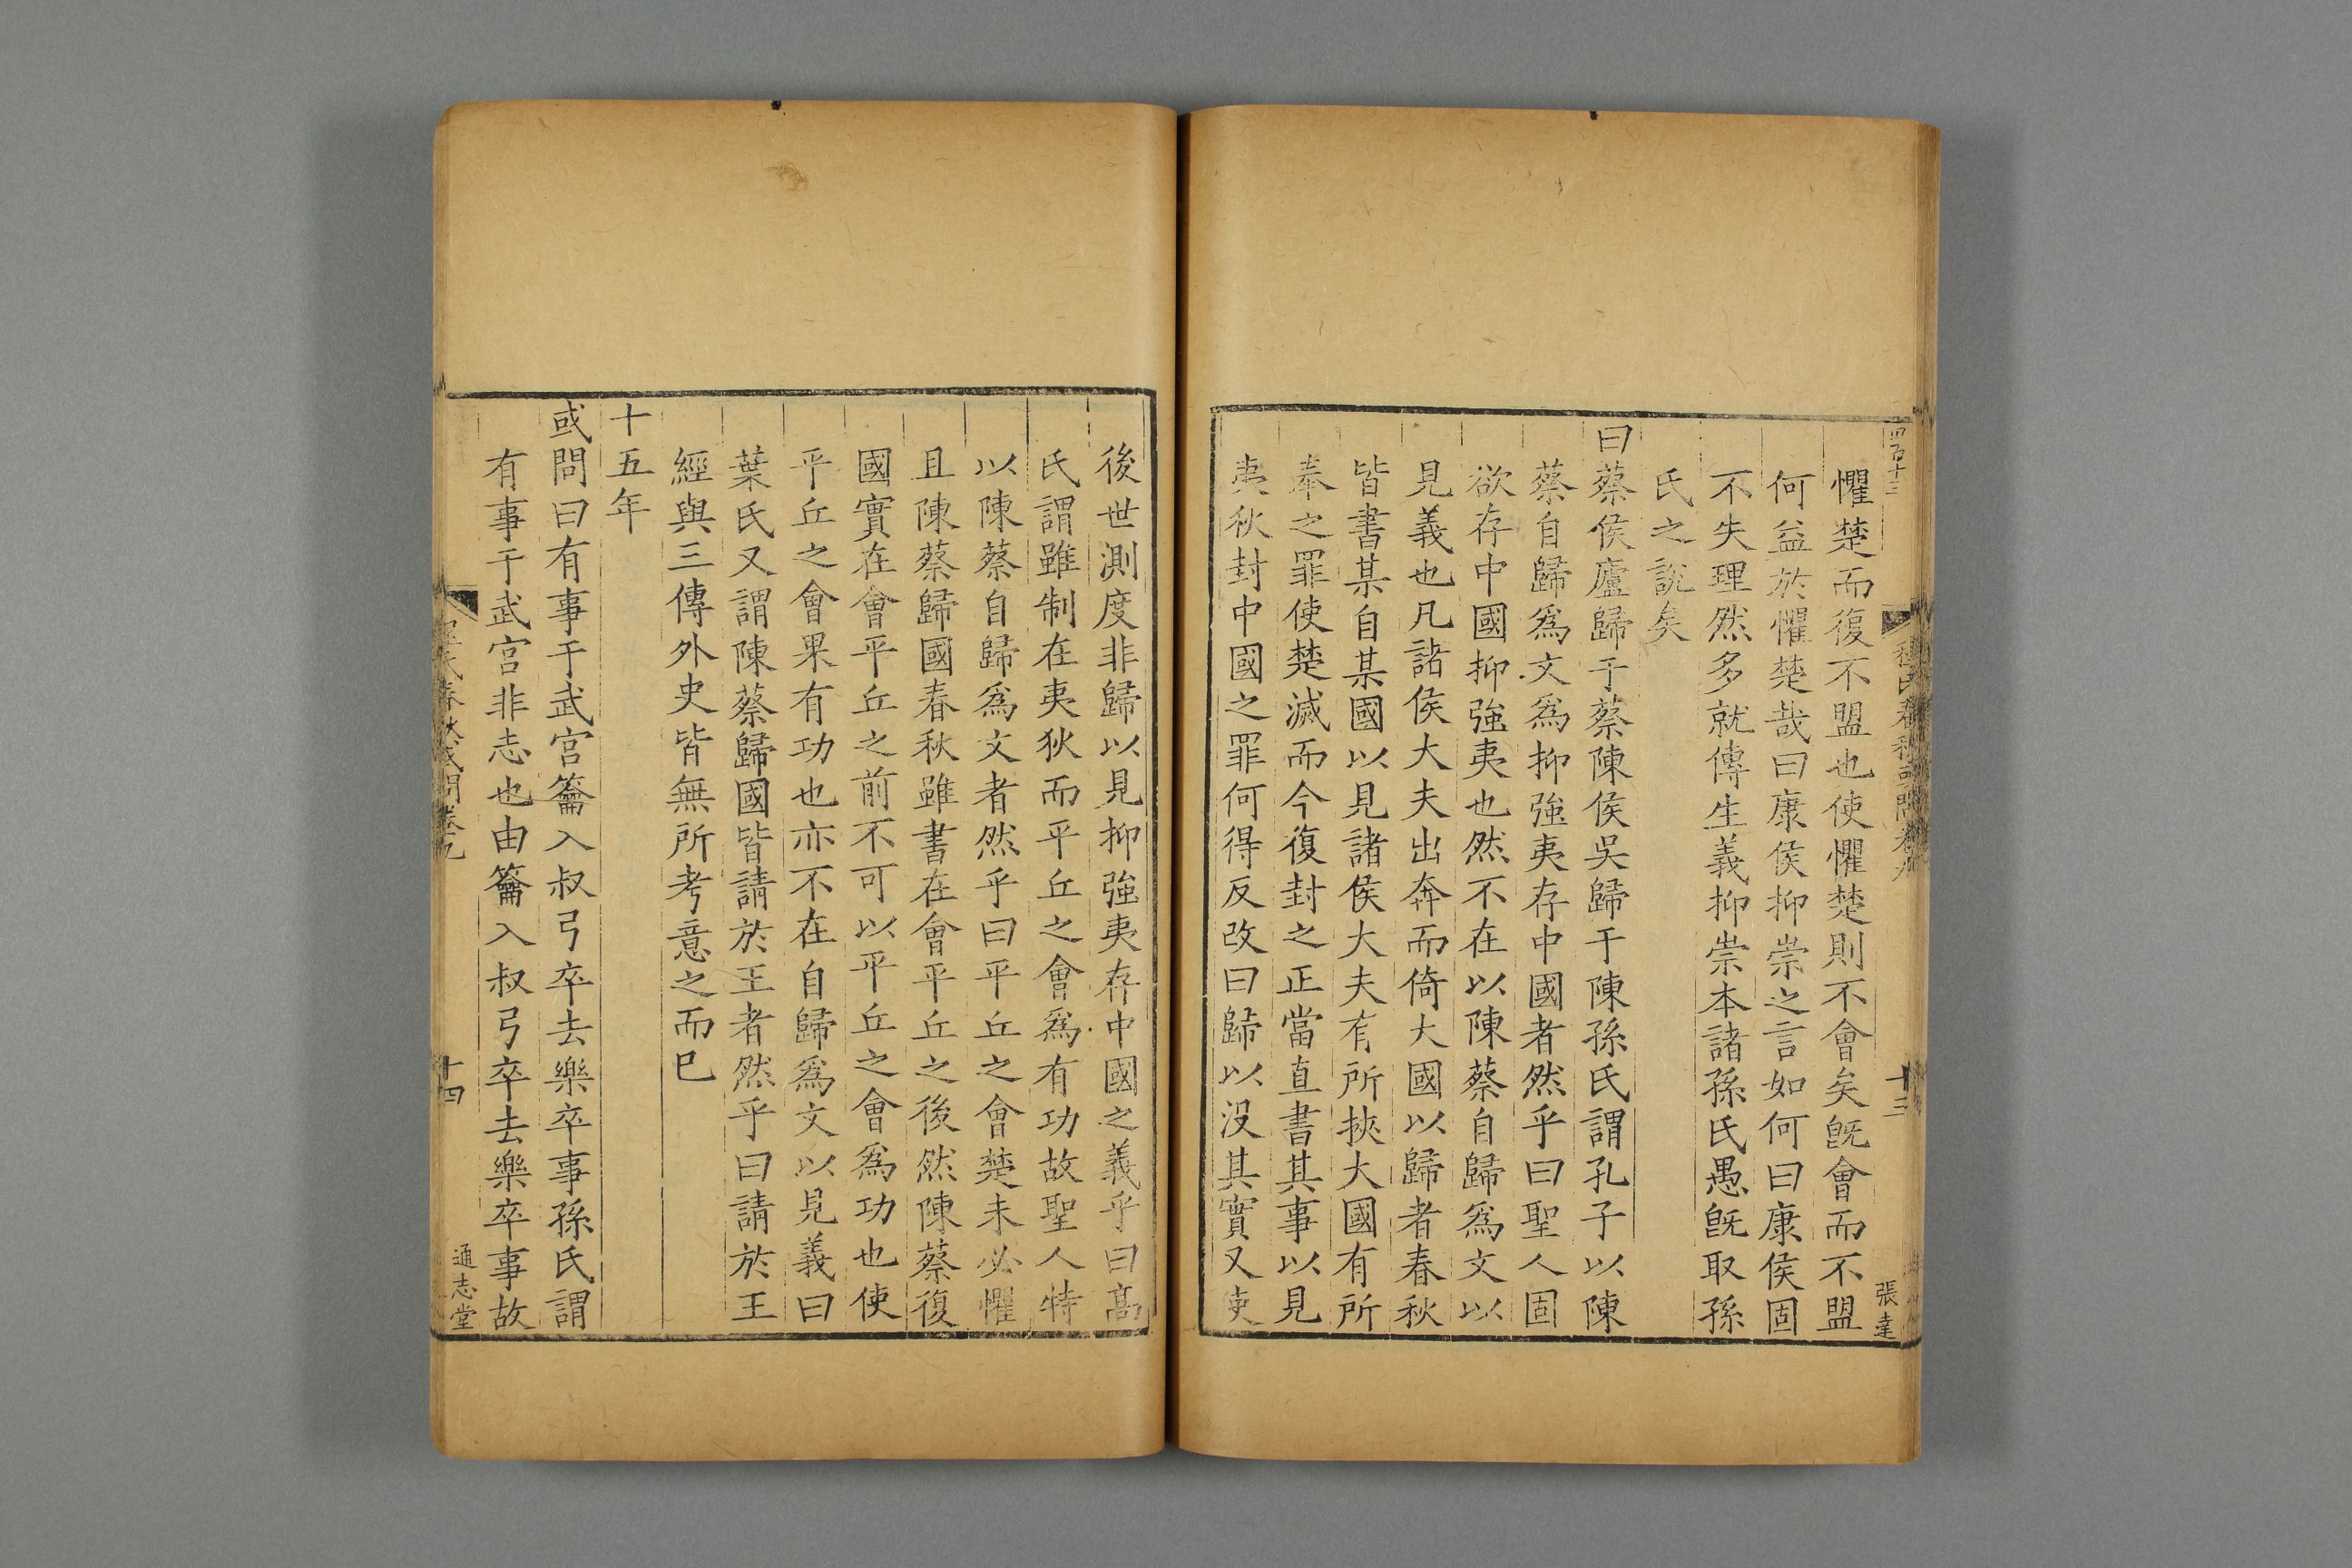 四百十三
十三
張達
懼楚而復不盟也使懼楚則不會矣旣會而不盟
何益於懼楚哉曰康侯抑崇之言如何曰康侯固
不失理然多就傳生義抑崇本諸孫氏愚旣取孫
氏之說矣
曰蔡侯廬歸于蔡陳侯吳歸于陳孫氏謂孔子以陳
蔡自歸爲文爲抑強夷存中國者然乎曰聖人固
欲存中國抑強夷也然不在以陳蔡自歸爲文以
見義也凡諸侯大夫出奔而倚大國以歸者春秋
皆書某自某國以見諸侯大夫有所挾大國有所
奉之罪使楚滅而今復封之正當直書其事以見
夷狄封中國之罪何得反改曰歸以没其實又使
後世測度非歸以見抑強夷存中國之義乎曰高
氏謂雖制在夷狄而平丘之會爲有功故聖人特
以陳蔡自歸爲文者然乎曰平丘之會楚未必懼
且陳蔡歸國春秋雖書在會平丘之後然陳蔡復
國實在會平丘之前不可以平丘之會爲功也使
平丘之會果有功也亦不在自歸爲文以見義曰
葉氏又謂陳蔡歸國皆請於王者然乎曰請於王
經與三傳外史皆無所考意之而已
十五年
或問曰有事于武宮籥入叔弓卒去樂卒事孫氏謂
有事于武宮非志也由籥入叔弓卒去樂卒事故
春秋或問卷九
十四
通志堂